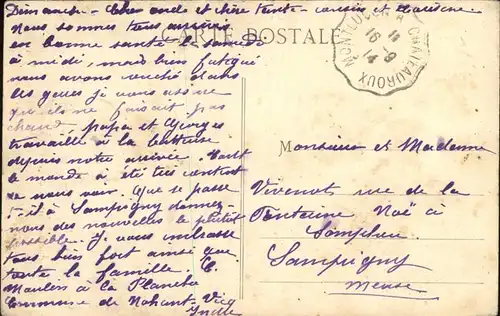 Dimanche - Cher oncle et chère tante - cousin et
Nous sommes tous arrivés
en bonne santé le samedi
à midi, mais bien fatigué
nous avons couché dans
les gares je vous assure
qu'il ne faisait pas
chaud, papa et Georges
travaille à la batteuse
depuis notre arrivée. Tout
le monde à été très content
de nous voir. Que se passe
t-il à Sampigny donnez-
nous des nouvelles le plutôt
possible. Je vous embrasse
tous bien fort ainsi que
toute la famille.
Moulin à la Planche
Commune de Nohant-Vicq
CARTE POSTALE
MONTLUÇON A CHATEAUROUX
16 - 9
14
Monsieur et Madame
Vivenot rue de la
Fontaine Noë à
Sampigny
Meuse